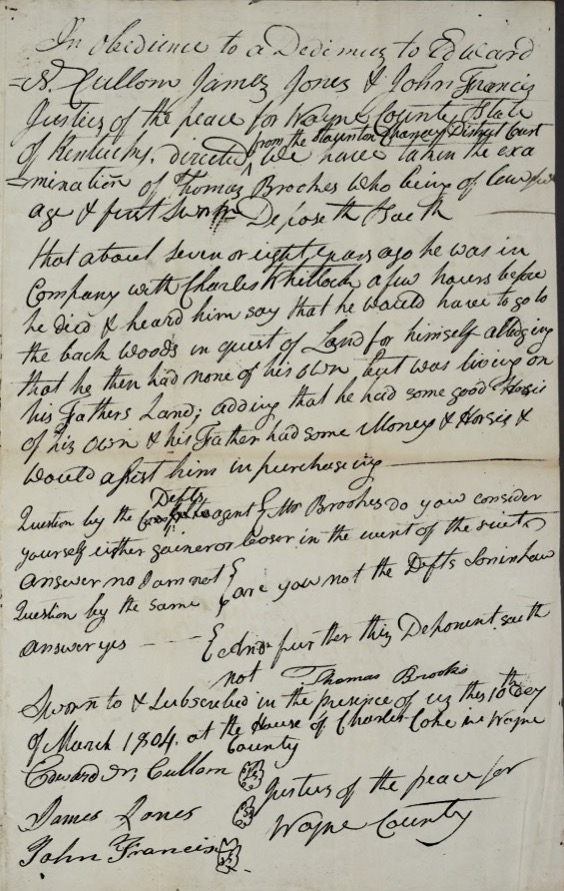 In obedience to a Dedimus to Edward
N. Cullom James Jones & John Francis
Justices of the peace for Wayne County State
from the Staunton Chancery District Court
of Kentucky, directed, we have taken the exa
=mination of Thomas Brookes who being of lawful
age & first sworn Deposeth Saeth
that about seven or eight years ago he was in
Company with Charles Whitlock a few hours before
he died & heard him say that he would have to go to
the back woods in quest of Land for himself alledging
that he then had none of his own but was living on
his Fathers Land; adding that he had some good Horses
of his own & his Father had some Money & Horsis &
would assist him in purchasing
Defts
Question by the agent } Mr Brookes do you consider
yourself either gainer or looser in the event of the suit
answer no I am not }
Question by the same } are you not the Defts Soninlaw
answer yes — { And further this Deponent saeth
not Thomas Brooks
Sworn to & Subscribed in the presence of us this 10th day
of March 1804. at the House of Charles Coke in Wayne
County
Edward N. Cullom
Justices of the peace for
James Jones
Wayne County
John Francis